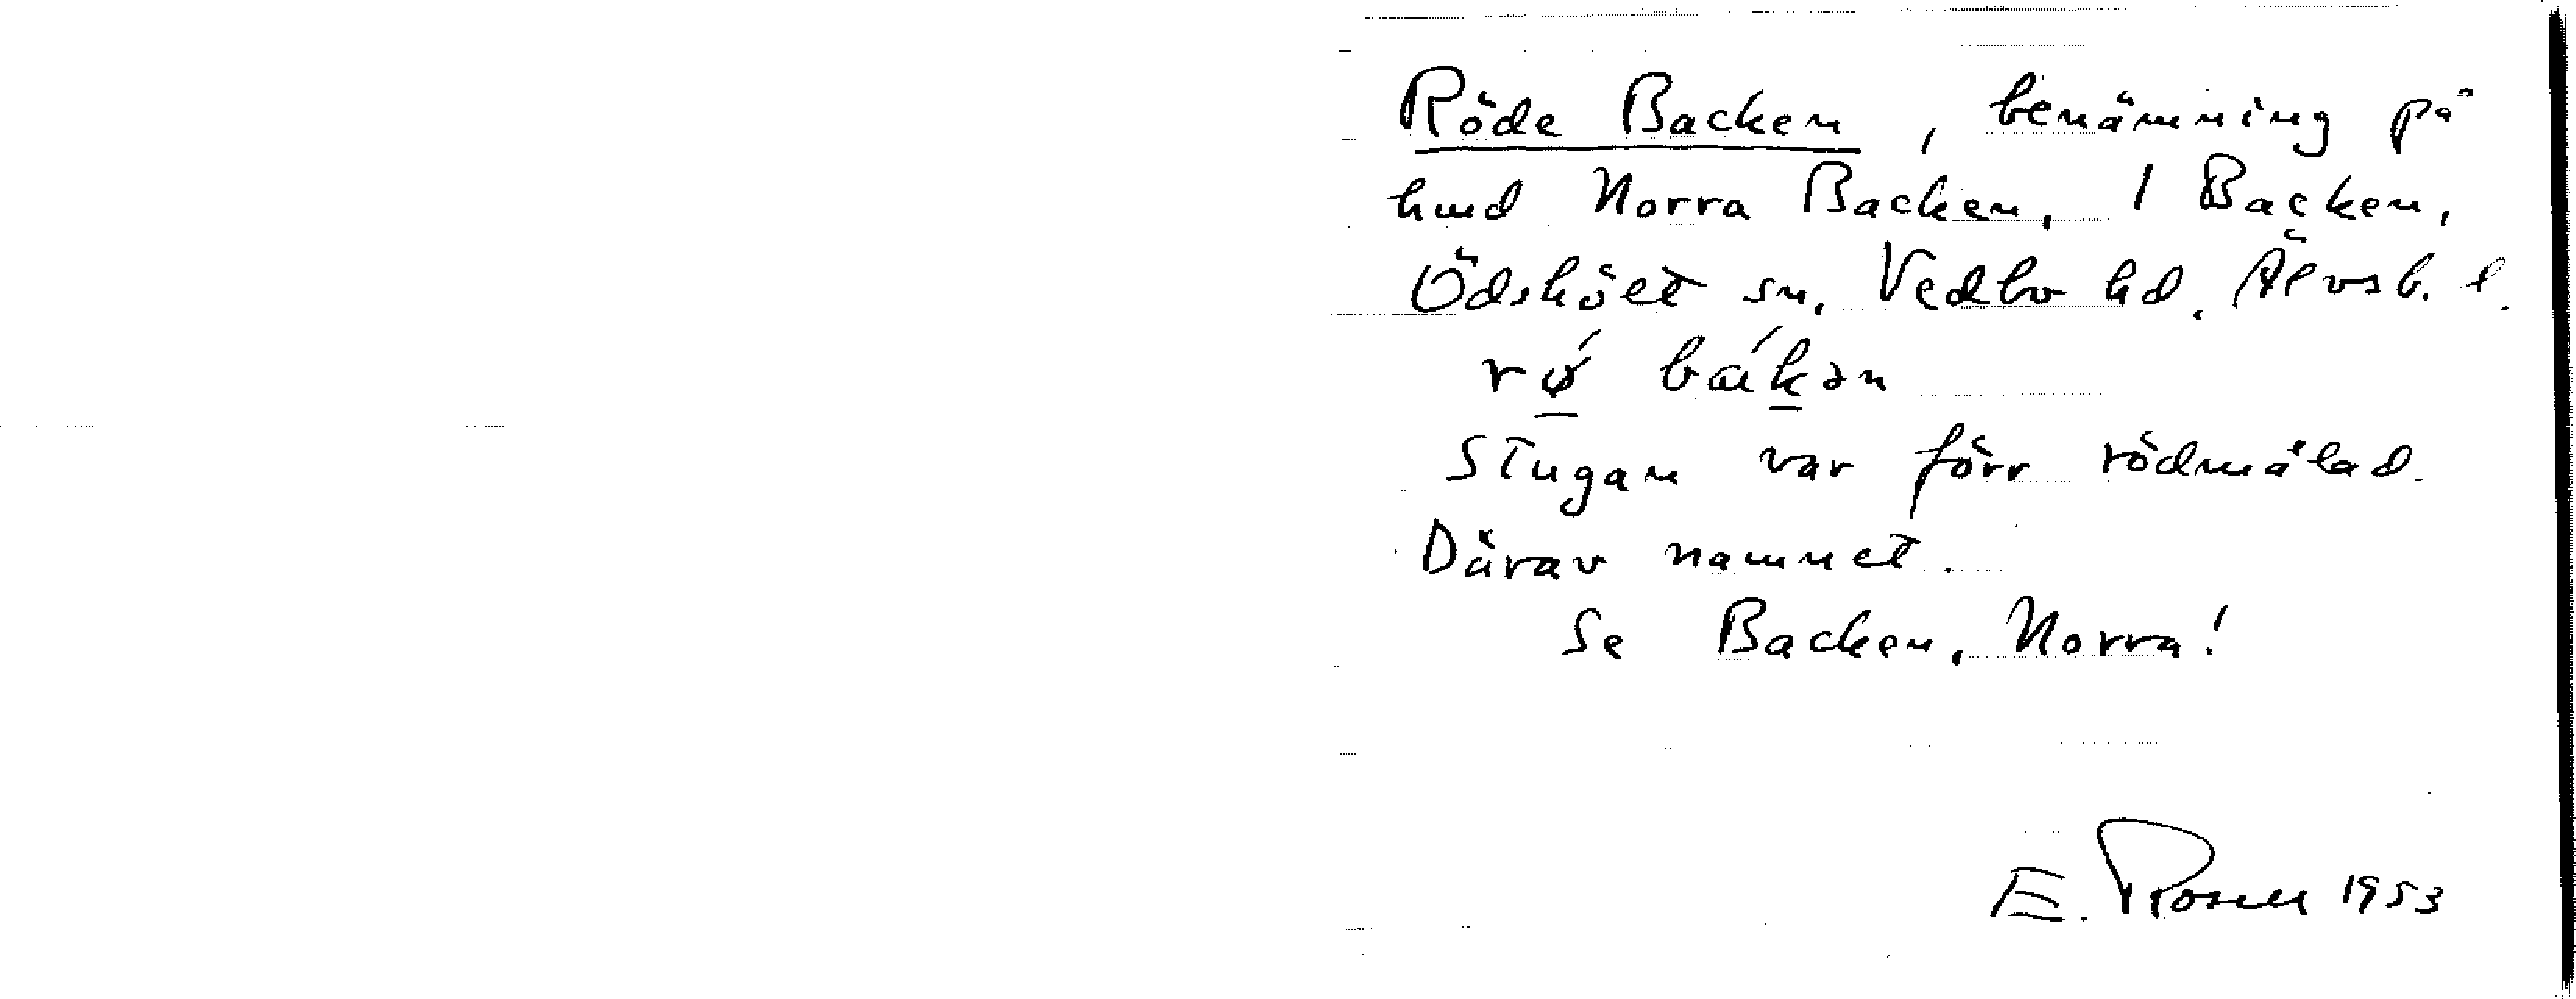 Röde Backen, benämning på
hmd Norra Backen, 1 Backen,
Ödskölt sn, Vedbo hd, Älvsb. l.
rǿ bákən
Stugan var förr rödmålad.
Därav namnet.
Se Backen, Norra!
E. Rosell 1953